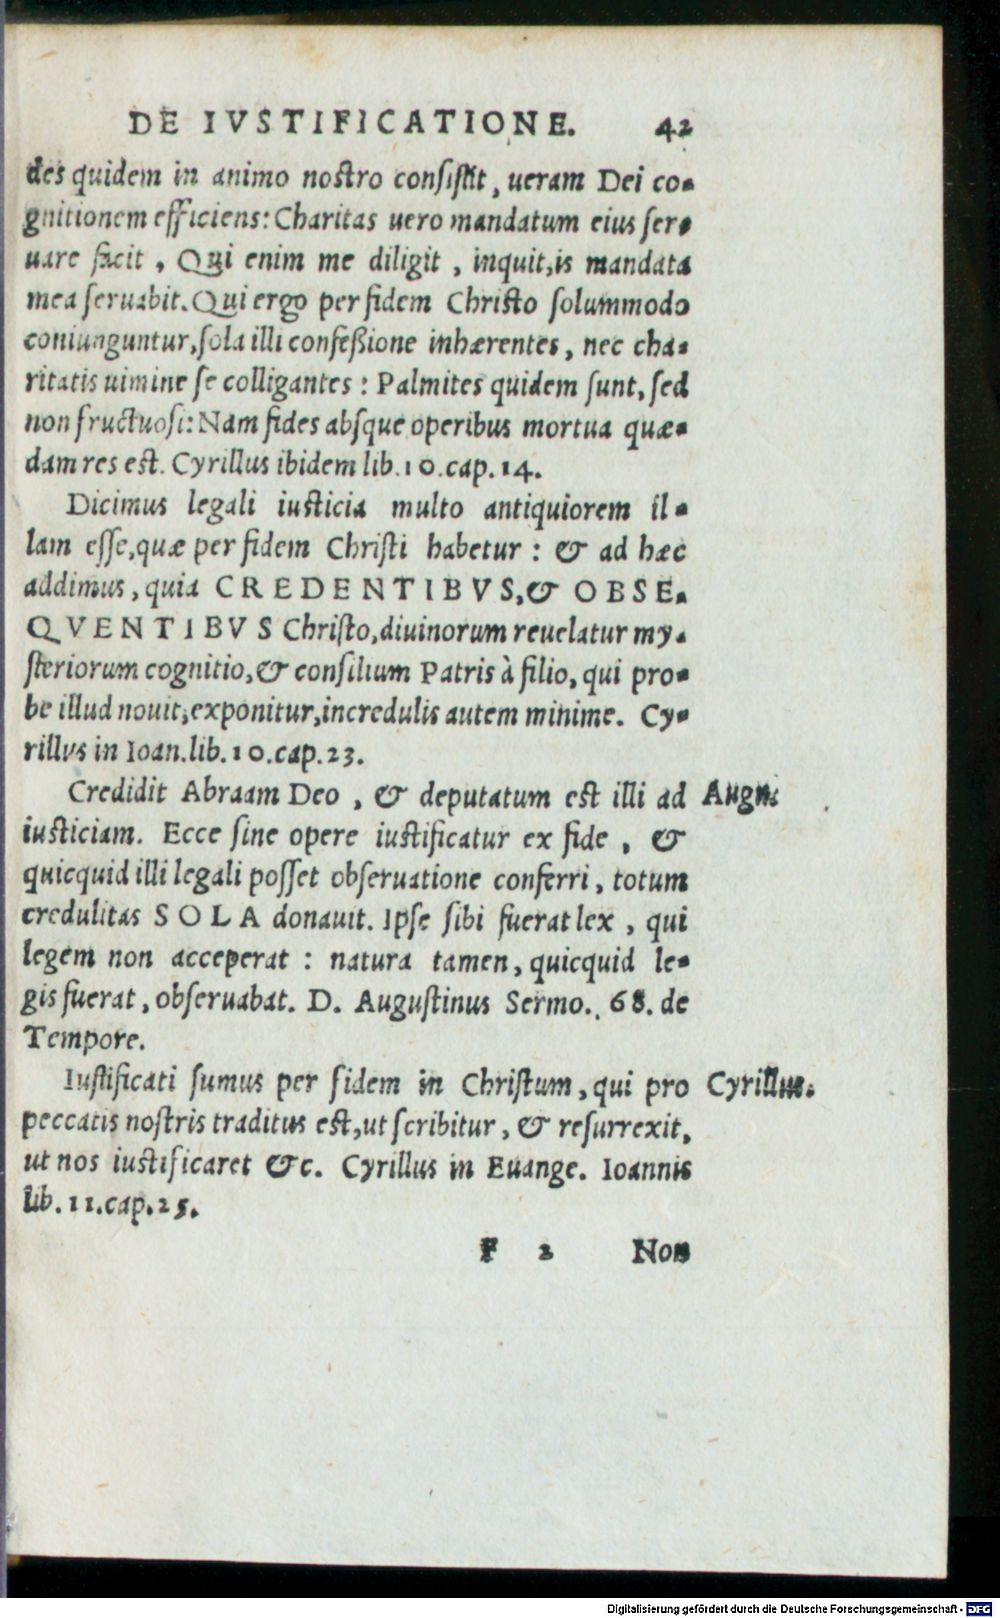 DE IVSTIFICATIONE. 42
des quidem in animo nostro consistit, ueram Dei co-
gnitionem efficiens: Charitas uero mandatum eius ser-
uare facit, Qui enim me diligit, inquit, is mandata
mea seruabit. Qui ergo per fidem Christo solummodo
coniunguntur, sola illi confeßione inhærentes, nec cha-
ritatis uimine se colligantes: Palmites quidem sunt, sed
non fructuosi: Nam fides absque operibus mortua quæ-
dam res est. Cyrillus ibidem lib. 10. cap. 14.
Dicimus legali iusticia multo antiquiorem il-
lam esse, quæ per fidem Christi habetur: & ad hæc
addimus, quia CREDENTIBVS, & OBSE-
QVENTIBVS Christo, diuinorum reuelatur my-
steriorum cognitio, & consilium Patris à filio, qui pro-
be illud nouit, exponitur, incredulis autem minime. Cy-
rillvs in Ioan. lib. 10. cap. 23.
Credidit Abraam Deo, & deputatum est illi ad Augu:
iusticiam. Ecce sine opere iustificatur ex fide, &
quicquid illi legali posset obseruatione conferri, totum
credulitas SOLA donauit. Ipse sibi fuerat lex, qui
legem non acceperat: natura tamen, quicquid le-
gis fuerat, obseruabat. D. Augustinus Sermo. 68. de
Tempore.
Iustificati sumus per fidem in Christum, qui pro Cyrillus.
peccatis nostris traditus est, ut scribitur, & resurrexit,
ut nos iustificaret &c. Cyrillus in Euange. Ioannis
lib. 11. cap. 25.
F 2 Non
Digitalisierung gefördert durch die Deutsche Forschungsgemeinschaft - DFG